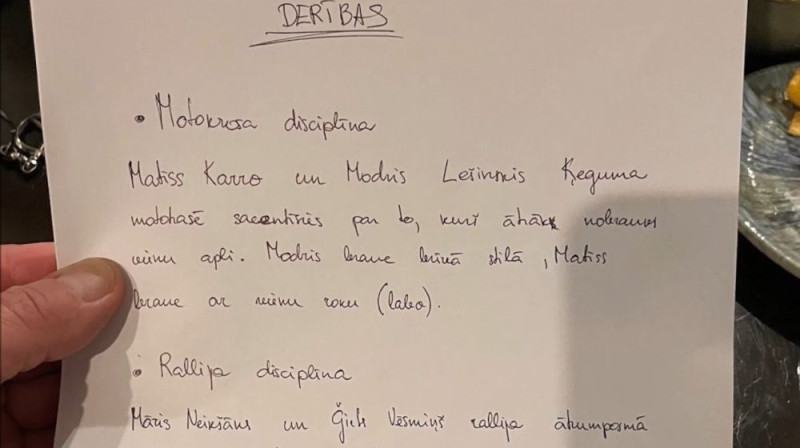 DERĪBAS
• Motokrosa disciplīna
Matiss Karro un Modris Ķeguma
motohasē sacentīsies par to, kurš ātrāk nobrauks
vienu apli. Modris brauc brīvā stilā, Matiss
brauc ar vienu roku (labo).
• Rallija disciplīna
Māris Neikšāns un Ģirts rallija ātrumposmā